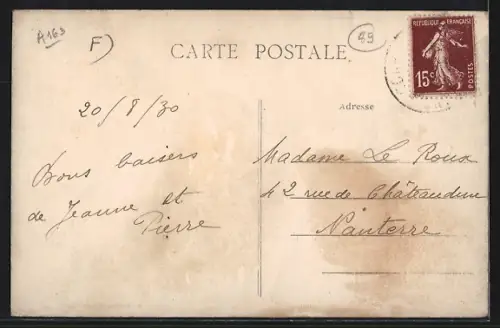 A163
F)
49
CARTE POSTALE
RÉPUBLIQUE FRANÇAISE
15c
POSTES
20/8/30
Adresse
Bons baisers
de Jeanne et
Pierre
Madame Le Roux
42 rue de Châteaudun
Nanterre